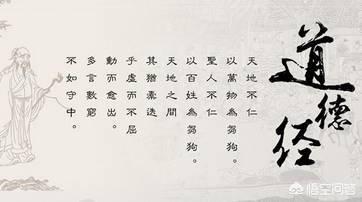 道德经
天地不仁
以萬物為芻狗。
聖人不仁
以百姓為芻狗。
天地之間
其猶橐
乎虛而不屈
動而愈出。
多言數窮
不如守中。
悟空问答